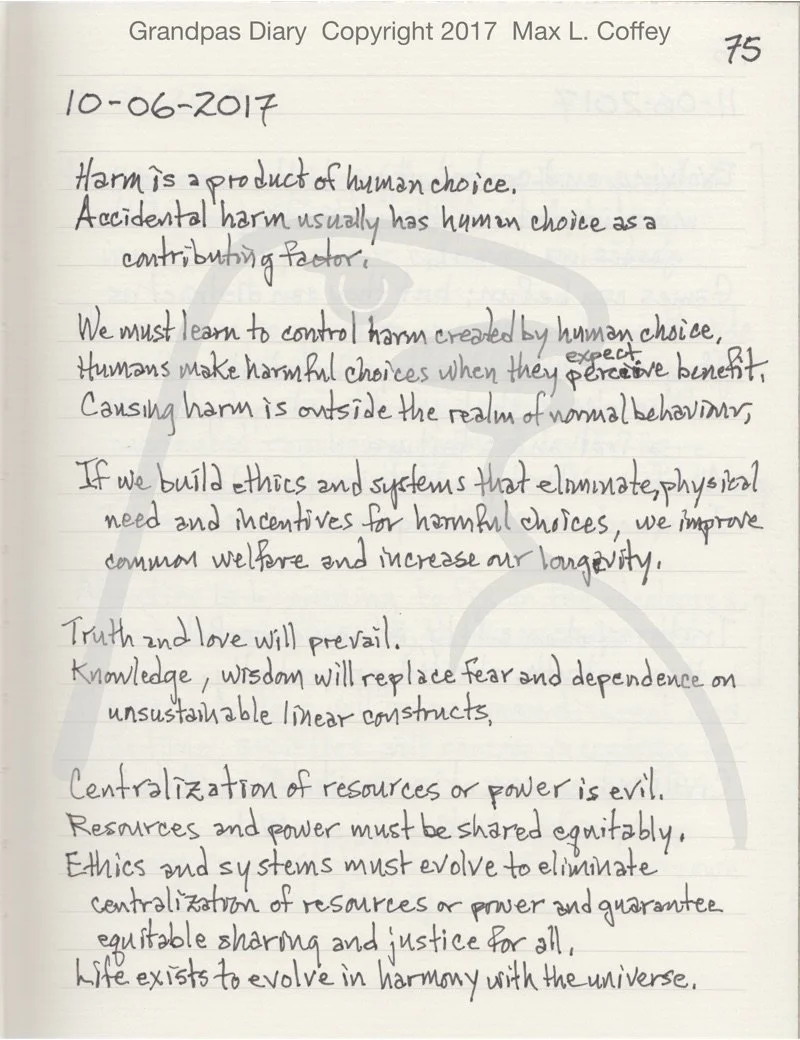 Grandpas Diary Copyright 2017 Max L. Coffey
75
10-06-2017
Harm is a product of human choice.
Accidental harm usually has human choice as a
contributing factor.
We must learn to control harm created by human choice,
expect
Humans make harmful choices when they perceive benefit.
Causing harm is outside the realm of normal behaviour,
If we build ethics and systems that eliminate, physical
need and incentives for harmful choices, we improve
common welfare and increase our longevity.
Truth and love will prevail.
Knowledge, wisdom will replace fear and dependence on
unsustainable linear constructs.
Centralization of resources or power is evil.
Resources and power must be shared equitably.
Ethics and systems must evolve to eliminate
centralization of resources or power and guarantee
equitable sharing and justice for all.
Life exists to evolve in harmony with the universe.